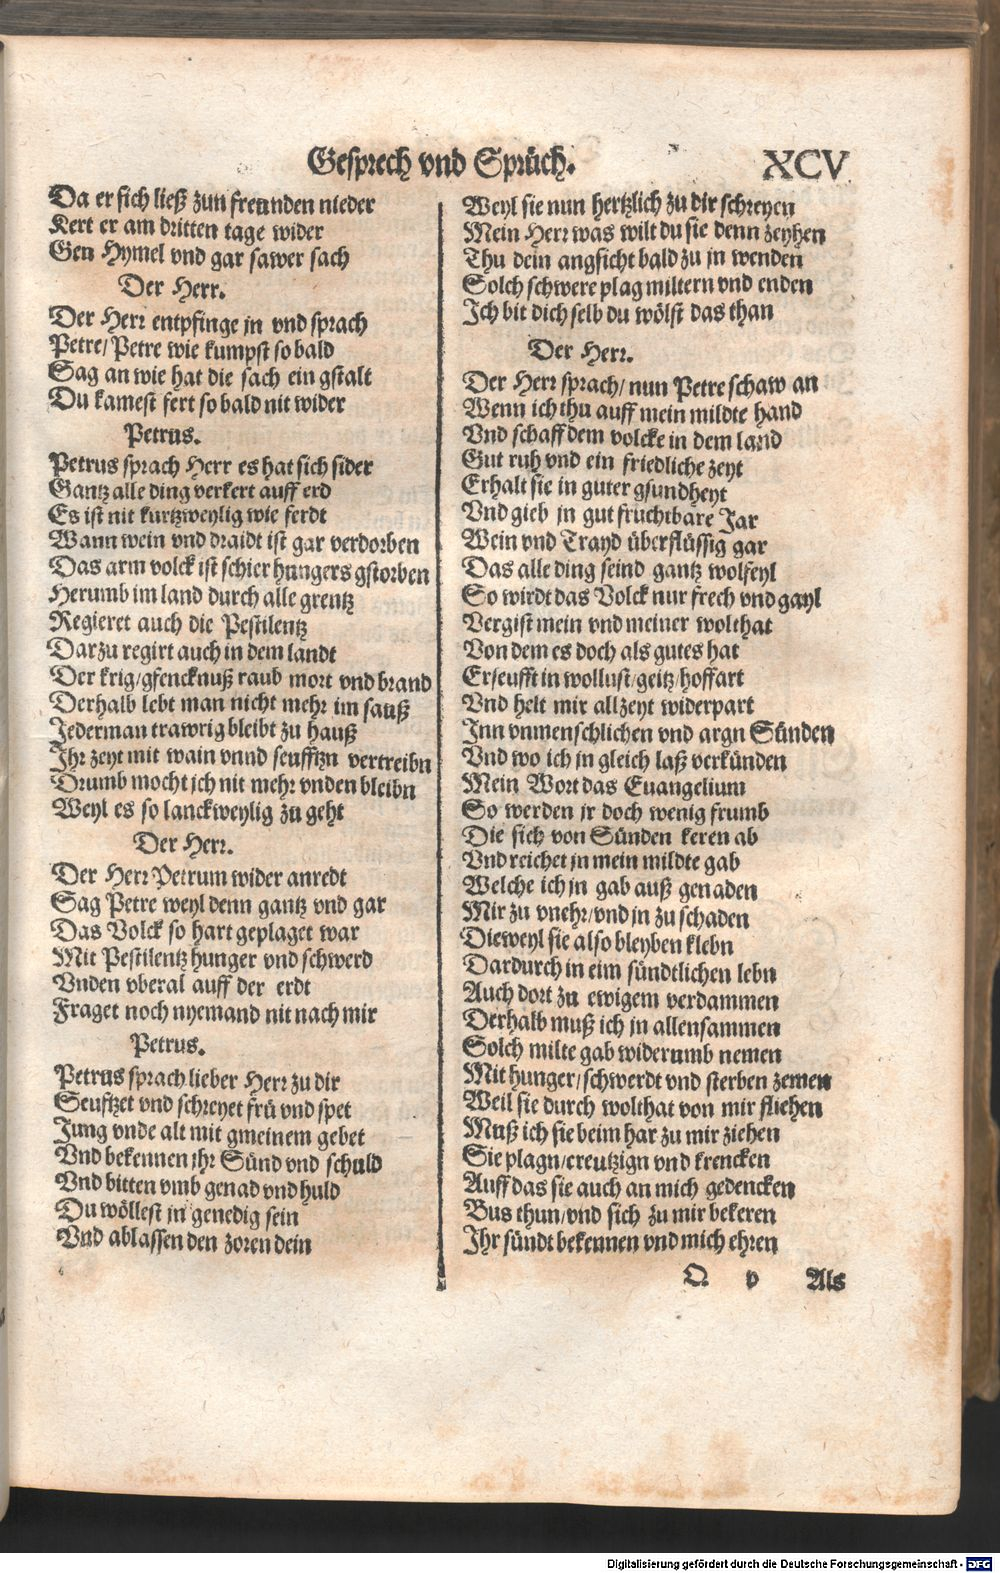 Gesprech vnd Sprüch. XCV
Da er sich ließ zun freunden nieder
Kert er am dritten tage wider
Gen Hymel vnd gar sawer sach
Der Herr.
Der Herr entpfinge jn vnd sprach
Petre/ Petre wie kumpst so bald
Sag an wie hat die sach ein gstalt
Du kamest fert so bald nit wider
Petrus.
Petrus sprach Herr es hat sich sider
Gantz alle ding verkert auff erd
Es ist nit kurtzweylig wie ferdt
Wann wein vnd draidt ist gar verdorben
Das arm volck ist schier hungers gstorben
Herumb im land durch alle grentz
Regieret auch die Pestilentz
Darzu regirt auch in dem landt
Der krig/gfencknuß raub mort vnd brand
Derhalb lebt man nicht mehr im sauß
Jederman trawrig bleibt zu hauß
Ihr zeyt mit wain vnnd seufftzn vertreibn
Drumb mocht jch nit mehr vnden bleibn
Weyl es so lanckweylig zu geht
Der Herr.
Der Herr Petrum wider anredt
Sag Petre weyl denn gantz vnd gar
Das Volck so hart geplaget war
Mit Pestilentz hunger vnd schwerd
Vnden vberal auff der erdt
Fraget noch nyemand nit nach mir
Petrus.
Petrus sprach lieber Herr zu dir
Seufftzet vnd schreyet frü vnd spet
Jung vnde alt mit gmeinem gebet
Vnd bekennen jhr Sünd vnd schuld
Vnd bitten vmb genad vnd huld
Du wöllest jn genedig sein
Vnd ablassen den zoren dein
Weyl sie nun hertzlich zu dir schreyen
Mein Herr was wilt du sie denn zeyhen
Thu dein angsicht bald zu jn wenden
Solch schwere plag miltern vnd enden
Ich bit dich selb du wölst das than
Der Herr.
Der Herr sprach/ nun Petre schaw an
Wenn ich thu auff mein mildte hand
Vnd schaff dem volcke in dem land
Gut ruh vnd ein friedliche zeyt
Erhalt sie in guter gsundheyt
Vnd gieb jn gut fruchtbare Jar
Wein vnd Trayd überflüssig gar
Das alle ding seind gantz wolfeyl
So wirdt das Volck nur frech vnd gayl
Vergist mein vnd meiner wolthat
Von dem es doch als gutes hat
Erseufft in wollust/geitz/hoffart
Vnd helt mir allzeyt widerpart
Inn vnmenschlichen vnd argn Sünden
Vnd wo ich in gleich laß verkünden
Mein Wort das Euangelium
So werden jr doch wenig frumb
Die sich von Sünden keren ab
Vnd reichet jn mein mildte gab
Welche ich jn gab auß genaden
Mir zu vnehr/vnd jn zu schaden
Dieweyl sie also bleyben klebn
Dardurch in eim sündtlichen lebn
Auch dort zu ewigem verdammen
Derhalb muß ich jn allensammen
Solch milte gab widerumb nemen
Mit hunger/schwerdt vnd sterben zemen
Weil sie durch wolthat von mir fliehen
Muß ich sie beim har zu mir ziehen
Sie plagn/creutzign vnd krencken
Auff das sie auch an mich gedencken
Bus thun/vnd sich zu mir bekeren
Ihr sündt bekennen vnd mich ehren
O. v Als
Digitalisierung gefördert durch die Deutsche Forschungsgemeinschaft - DFG